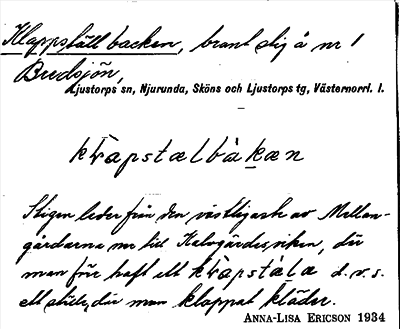 Klappställbacken, brant stig å nr 1
Bredsjön,
Ljustorps sn, Njurunda, Sköns och Ljustorps tg, Västernorrl. l.
Stigen leder från den västligaste av Mellan-
gårdarna ner till Kalvgärdesviken, där
man förr haft ett d.v.s.
ett ställe, där man klappat kläder.
ANNA-LISA ERICSON 1934